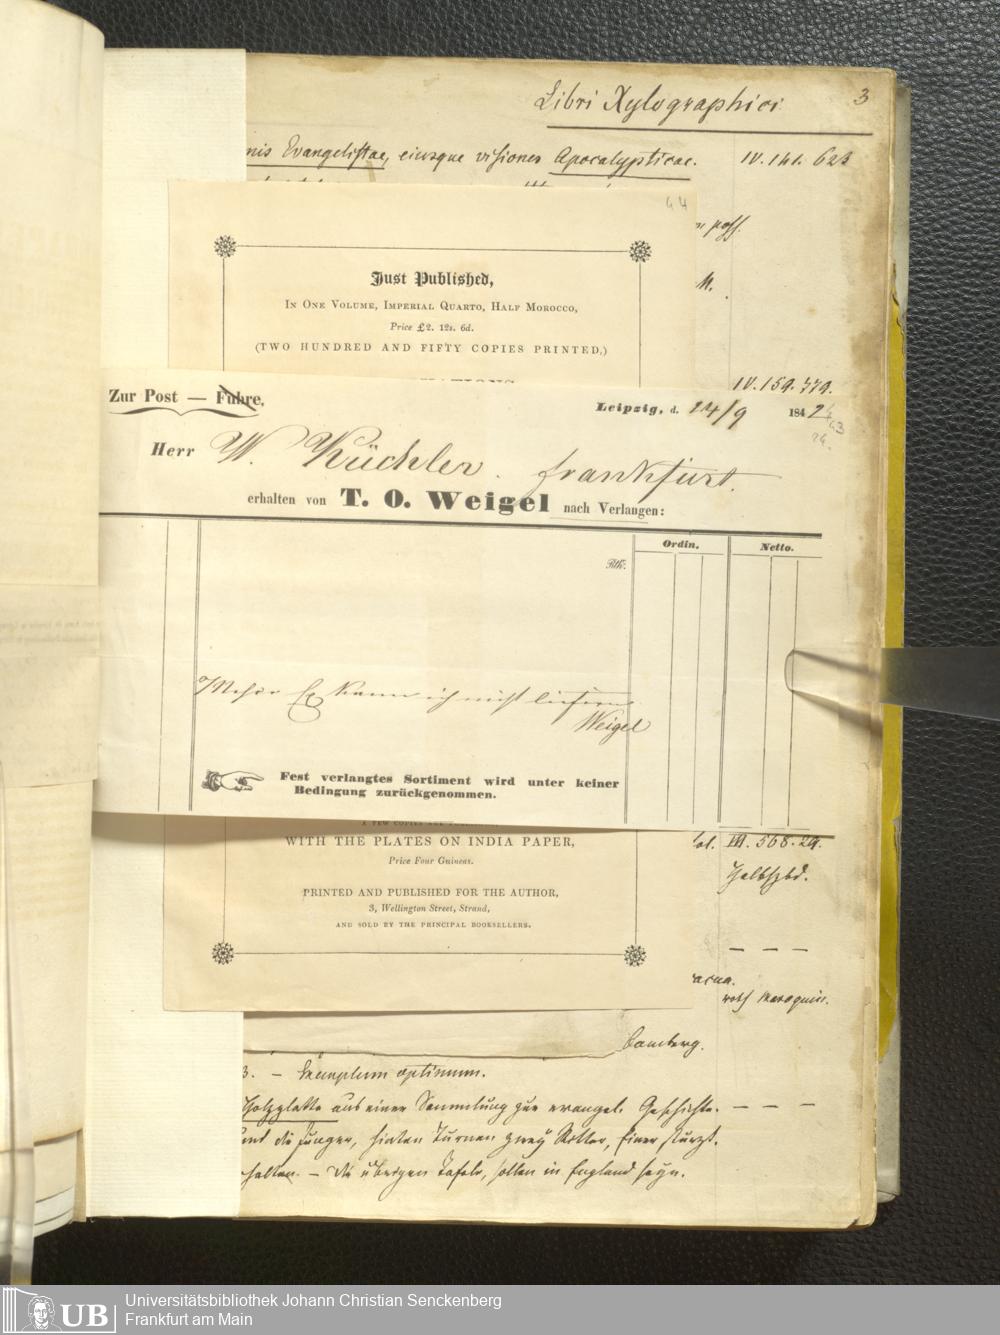 Libri Xylographici
3
nis Evangelistae, eiusque visiones Apocalypticae.
IV. 141. 623
44
Just Published,
In One Volume, Imperial Quarto, Half Morocco,
Price £2. 12s. 6d.
(TWO HUNDRED AND FIFTY COPIES PRINTED,)
M.
IV. 159. 779.
Zur Post — Fuhre,
Leipzig, d. 24/9 184
Herr W. Küchler. Frankfurt.
erhalten von T. O. Weigel nach Verlangen:
Ordin.
Netto.
Rth:
Mehr Ex kann ich nicht liefern
Weigel
Fest verlangtes Sortiment wird unter keiner
Bedingung zurückgenommen.
WITH THE PLATES ON INDIA PAPER,
Vol. III. 568. 29.
Price Four Guineas.
Halbfzbd.
PRINTED AND PUBLISHED FOR THE AUTHOR,
3, Wellington Street, Strand,
AND SOLD BY THE PRINCIPAL BOOKSELLERS.
— — —
roth Maroquin.
Bamberg.
3. — Exemplum optimum.
Holzplatte aus einer Sammlung zur evangel. Geschichte. — — —
und die Jünger, hinten Turnen zwey Ritter, einer stürzt.
halten. — Die übrigen Tafeln, sollen in England seyn.
UB
Universitätsbibliothek Johann Christian Senckenberg
Frankfurt am Main